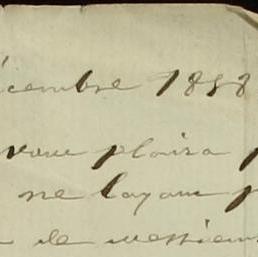 écembre 1858
vous plaira
ne layant
de messieurs